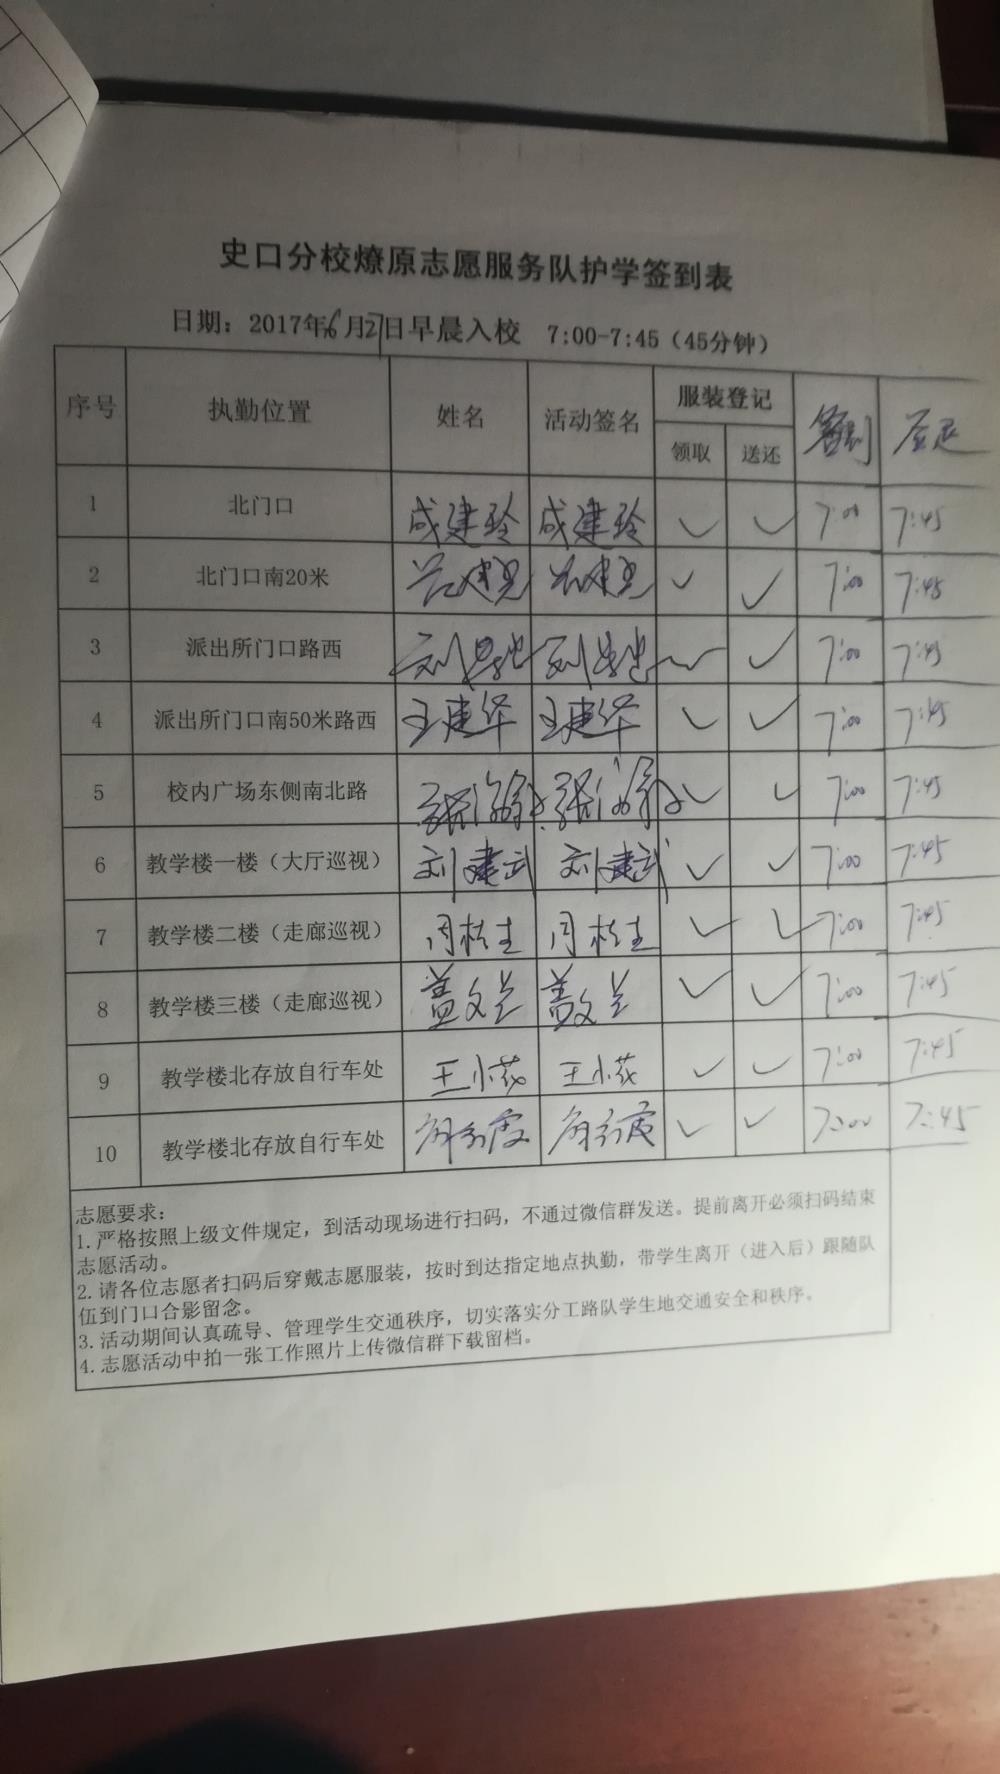 史口分校燎原志愿服务队护学签到表
日期：2017年6月27日早晨入校 7:00-7:45（45分钟）
序号 执勤位置 姓名 活动签名 服装登记 签到 签退
领取 送还
1 北门口 成建玲 成建玲 ✓ ✓ 7:00 7:45
2 北门口南20米 ✓ ✓ 7:00 7:45
3 派出所门口路西 刘 刘 ✓ ✓ 7:00 7:45
4 派出所门口南50米路西 王建华 王建华 ✓ ✓ 7:00 7:45
5 校内广场东侧南北路 张 张 ✓ ✓ 7:00 7:45
6 教学楼一楼（大厅巡视） 刘建武 刘建武 ✓ ✓ 7:00 7:45
7 教学楼二楼（走廊巡视） 周桂圭 周桂圭 ✓ ✓ 7:00 7:45
8 教学楼三楼（走廊巡视） 盖文兰 盖文兰 ✓ ✓ 7:00 7:45
9 教学楼北存放自行车处 王小花 王小花 ✓ ✓ 7:00 7:45
10 教学楼北存放自行车处 ✓ ✓ 7:00 7:45
志愿要求：
1.严格按照上级文件规定，到活动现场进行扫码，不通过微信群发送。提前离开必须扫码结束
志愿活动。
2.请各位志愿者扫码后穿戴志愿服装，按时到达指定地点执勤，带学生离开（进入后）跟随队
伍到门口合影留念。
3.活动期间认真疏导、管理学生交通秩序，切实落实分工路队学生地交通安全和秩序。
4.志愿活动中拍一张工作照片上传微信群下载留档。